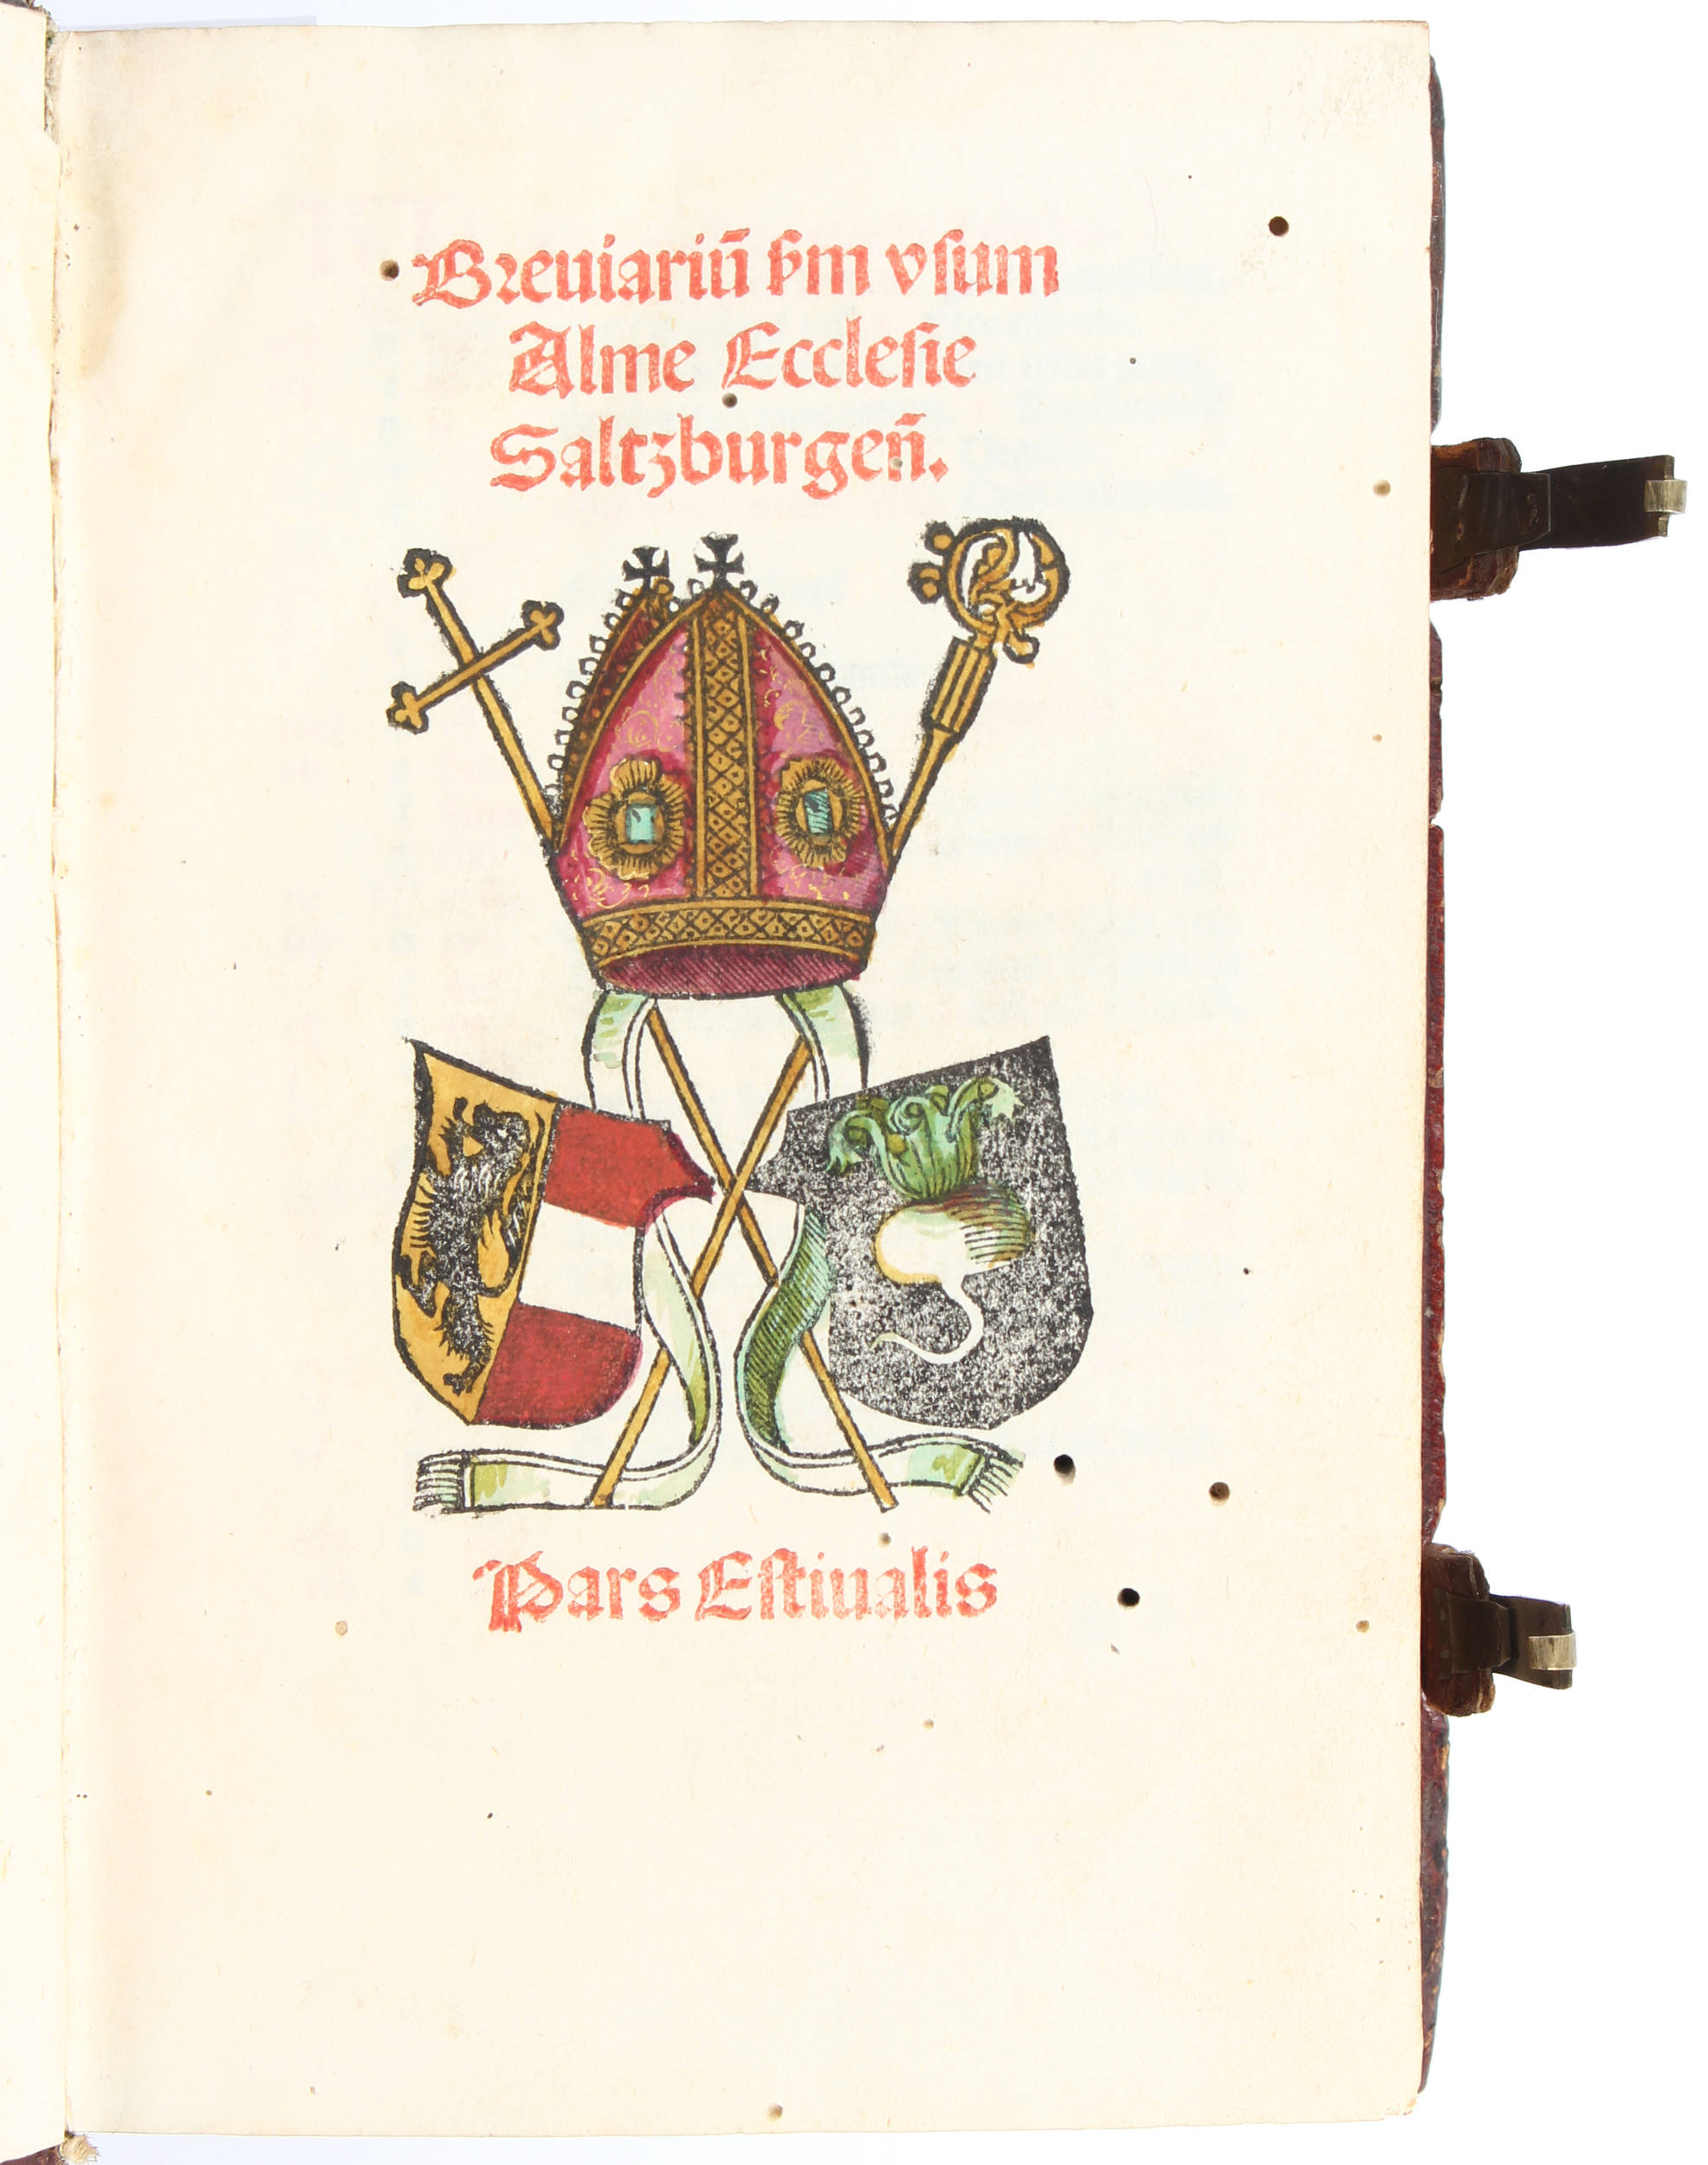 Breuiariū ẜm vſum
Alme Eccleſie
Saltzburgen̄.
Pars Eſtiualis